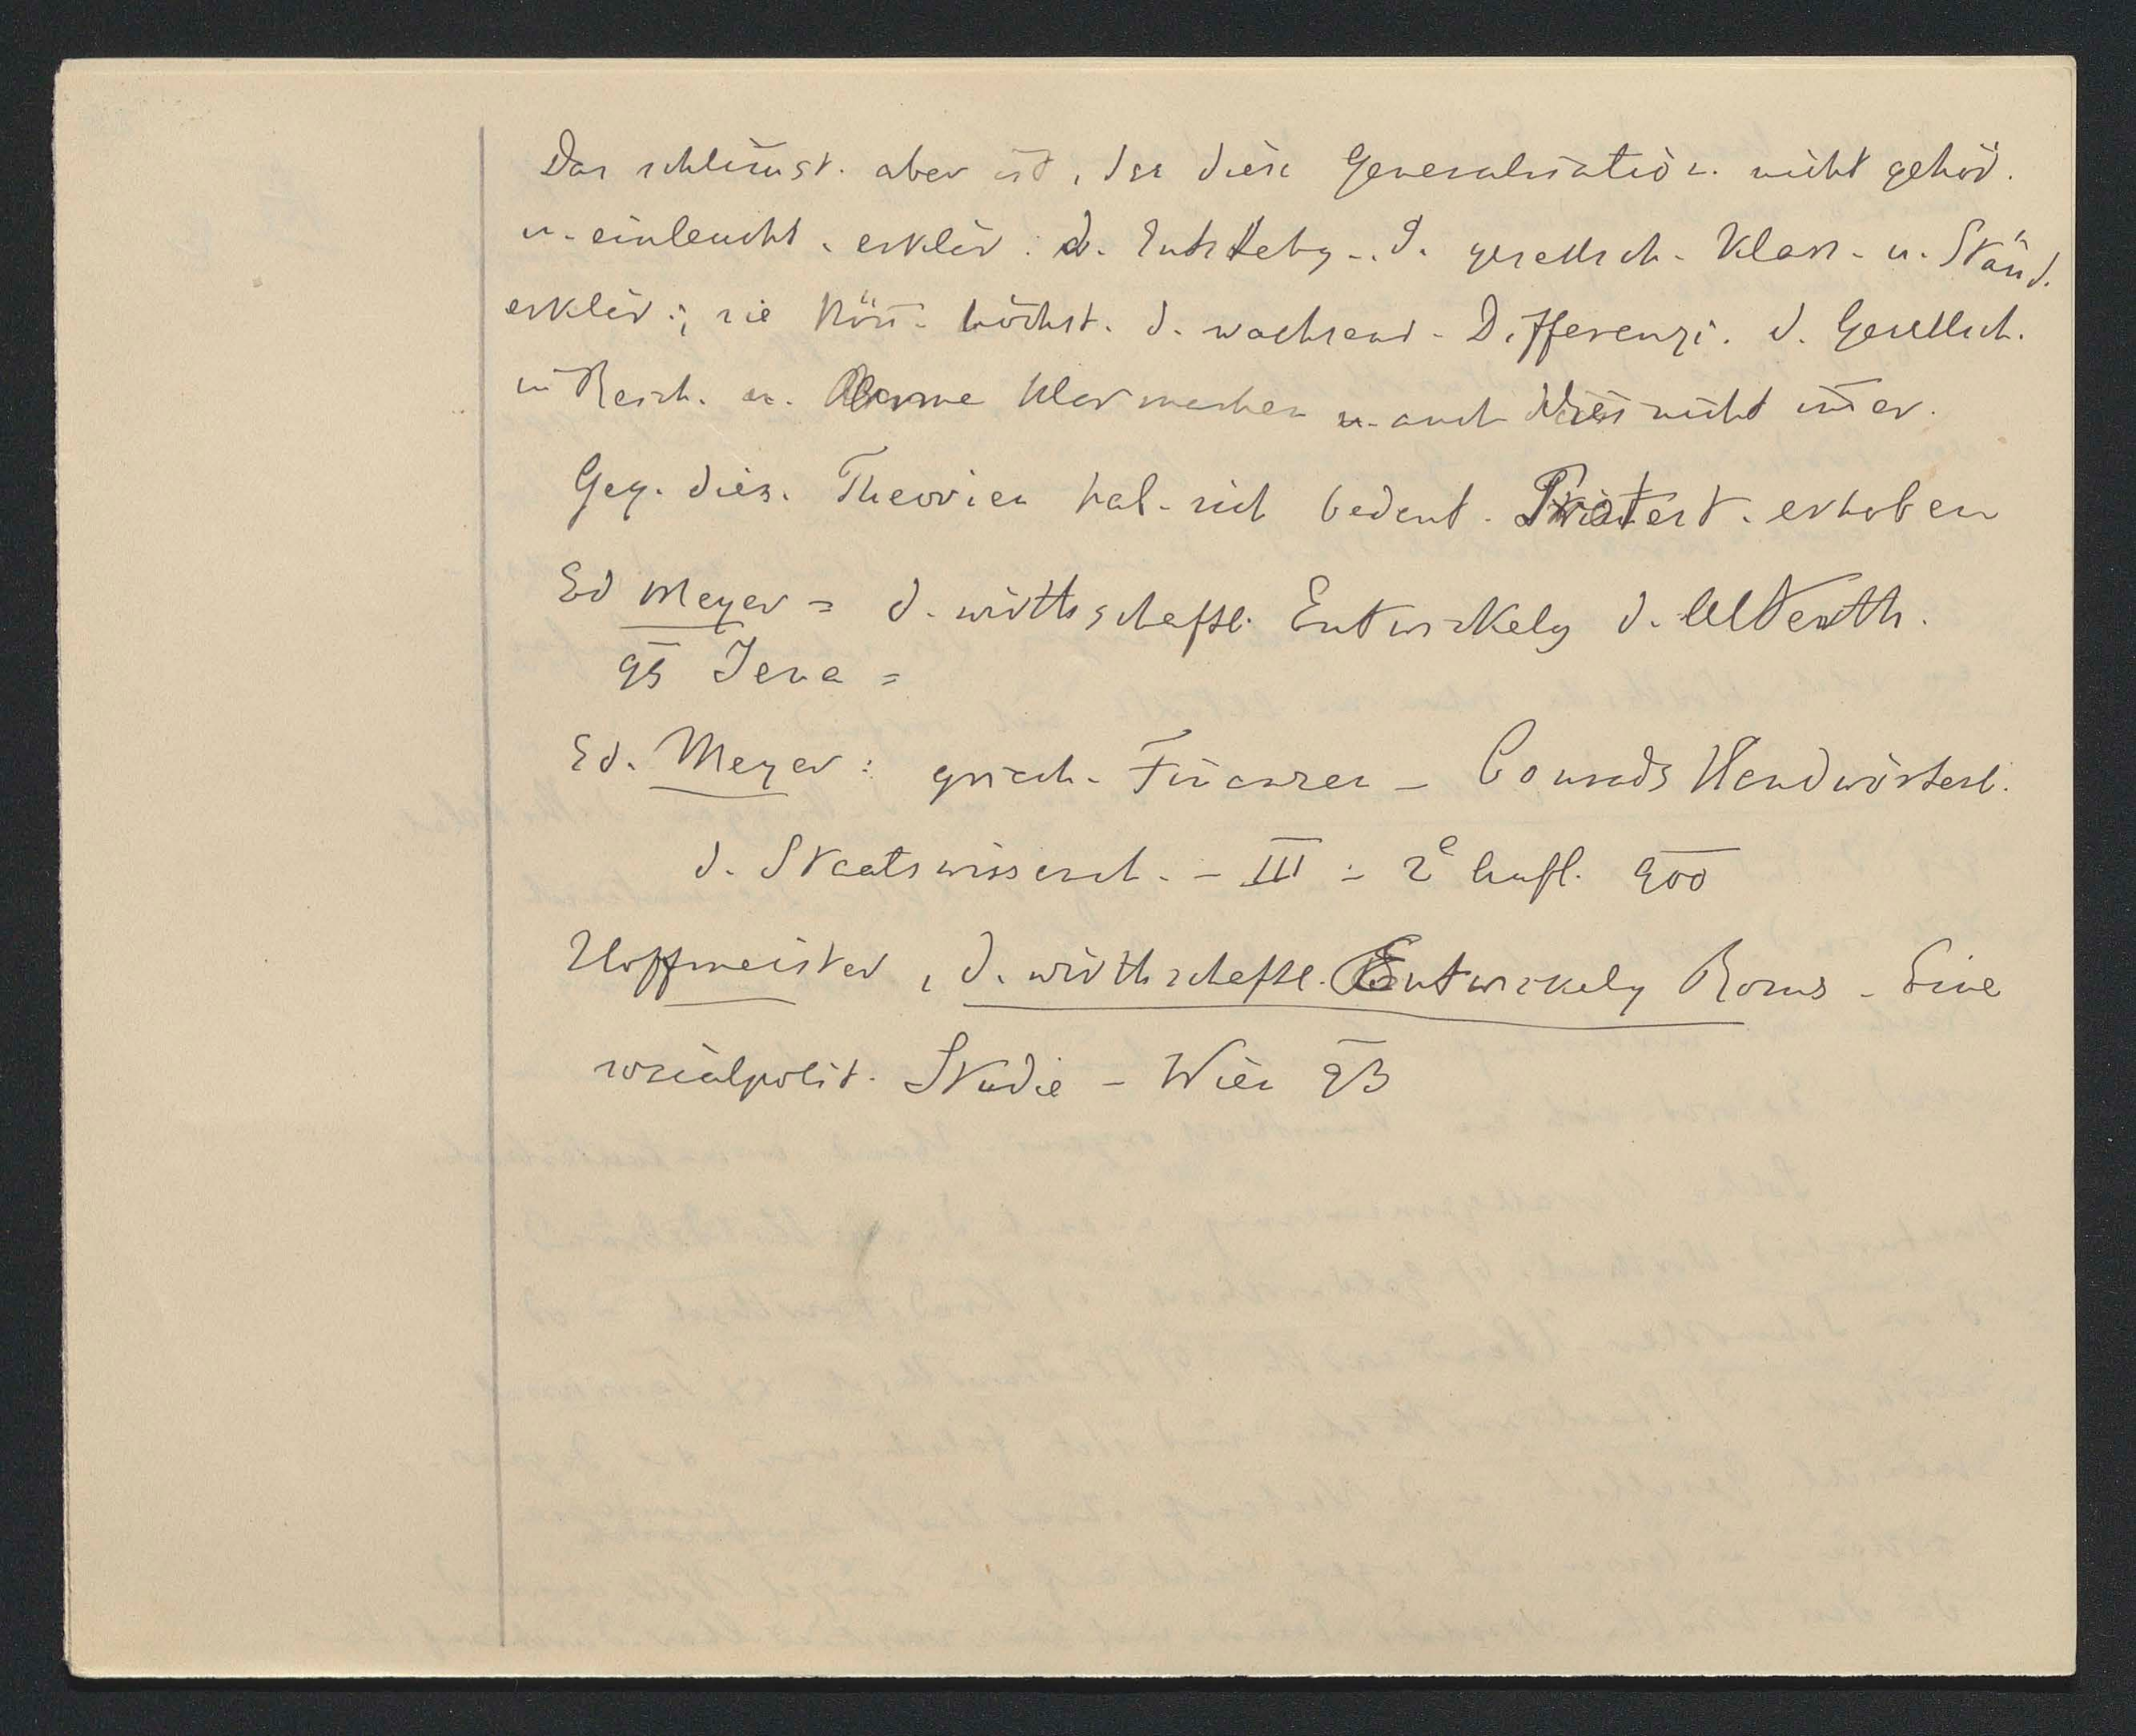 Das schlim̅st. aber ist, das diese Generalisation. nicht gehör.
u. einleucht. erklär. d. Entstehg. d. gesellsch. Klass. u. Ständ.
erklär.; sie kön̅. höchst. d. wachsend. Differenzi. d. Gesellsch.
in Reich. u. Arme klar machen u. auch dies nicht im̅er.
Geg. dies. Theorien hab. sich bedeut. Protest. erhoben
Ed Meyer = d. wirthschaftl. Entwickelg d. Alterth.
95 Jena =
Ed. Meyer: griech. Finanzen – Conrads Handwörterb.
d. Staatswissensch. – III – 2e Aufl. 900
Hoffmeister, d. wirthschaftl. Entwickelg Roms – Eine
sozialpolit. Studie – Wien